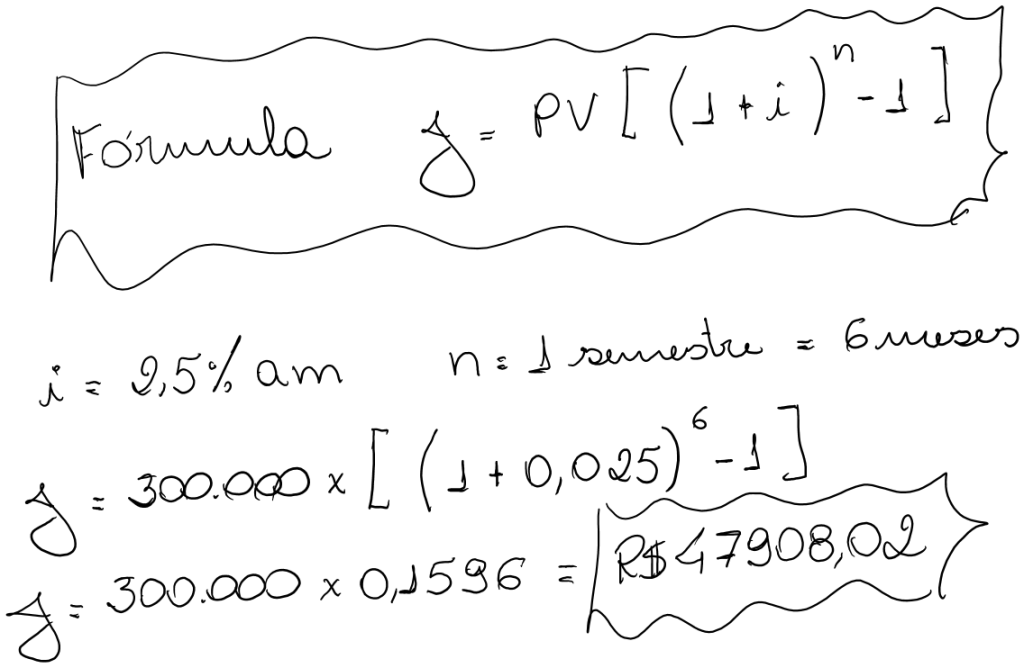 Fórmula J = PV [ (1 + i)ⁿ - 1 ]
i = 2,5% am n = 1 semestre = 6 meses
J = 300.000 x [ (1 + 0,025)⁶ - 1 ]
J = 300.000 x 0,1596 = R$ 47908,02